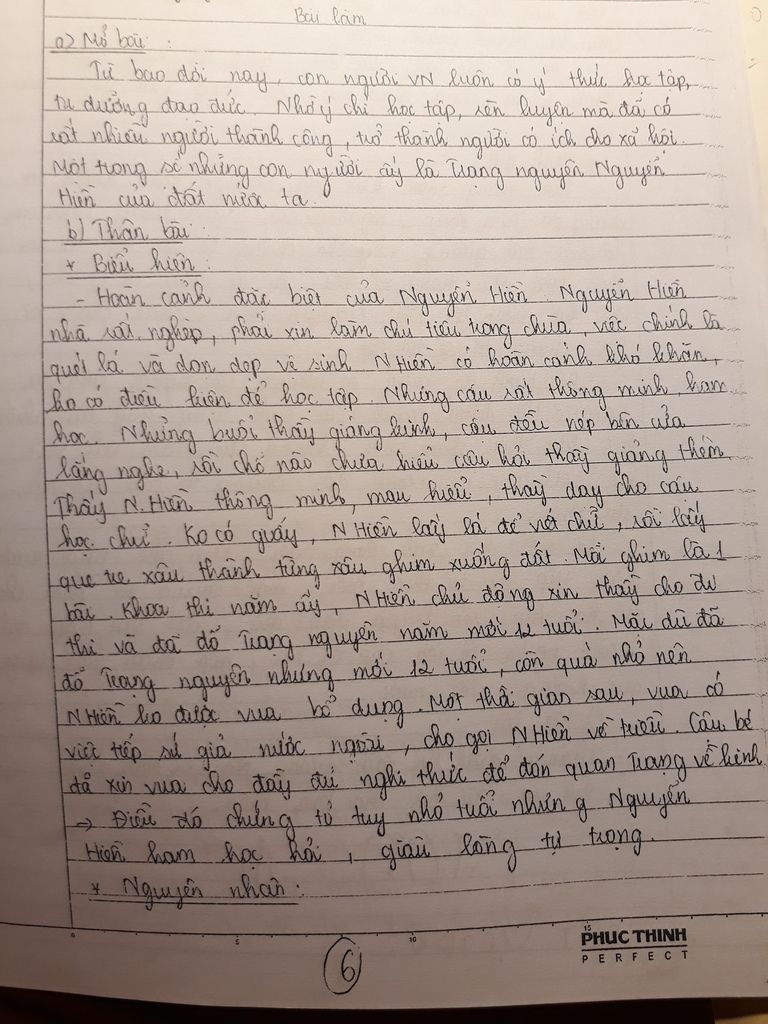 Bài làm
a) Mở bài :
Từ bao đời nay, con người VN luôn có ý thức học tập,
tu dưỡng đạo đức. Nhờ ý chí học tập, rèn luyện mà đã có
rất nhiều người thành công, trở thành người có ích cho xã hội.
Một trong số những con người ấy là Trạng nguyên Nguyễn
Hiền của đất nước ta.
b) Thân bài :
* Biểu hiện :
- Hoàn cảnh đặc biệt của Nguyễn Hiền. Nguyễn Hiền
nhà rất nghèo, phải xin làm chú tiểu trong chùa, việc chính là
quét lá và dọn dẹp vệ sinh. N Hiền có hoàn cảnh khó khăn,
ko có điều kiện để học tập. Nhưng cậu rất thông minh, ham
học. Những buổi thầy giảng kinh, cậu đều nép bên cửa
lắng nghe, rồi chỗ nào chưa hiểu cậu hỏi thầy giảng thêm.
Thấy N. Hiền thông minh, mau hiểu, thầy dạy cho cậu
học chữ. Ko có giấy, N Hiền lấy lá để viết chữ, rồi lấy
que tre xâu thành từng xâu ghim xuống đất. Mỗi ghim là 1
bài. Khoa thi năm ấy, N Hiền chủ động xin thầy cho đi
thi và đã đỗ Trạng nguyên năm mới 12 tuổi. Mặc dù đã
đỗ Trạng nguyên nhưng mới 12 tuổi, còn quá nhỏ nên
N Hiền ko được vua bổ dụng. Một thời gian sau, vua có
việc tiếp sứ giả nước ngoài, cho gọi N Hiền về triều. Cậu bé
đã xin vua cho đầy đủ nghi thức để đón quan Trạng về kinh
→ Điều đó chứng tỏ tuy nhỏ tuổi nhưng Nguyễn
Hiền ham học hỏi, giàu lòng tự trọng.
* Nguyên nhân :
0 5 10 15
PHUC THINH
PERFECT
6